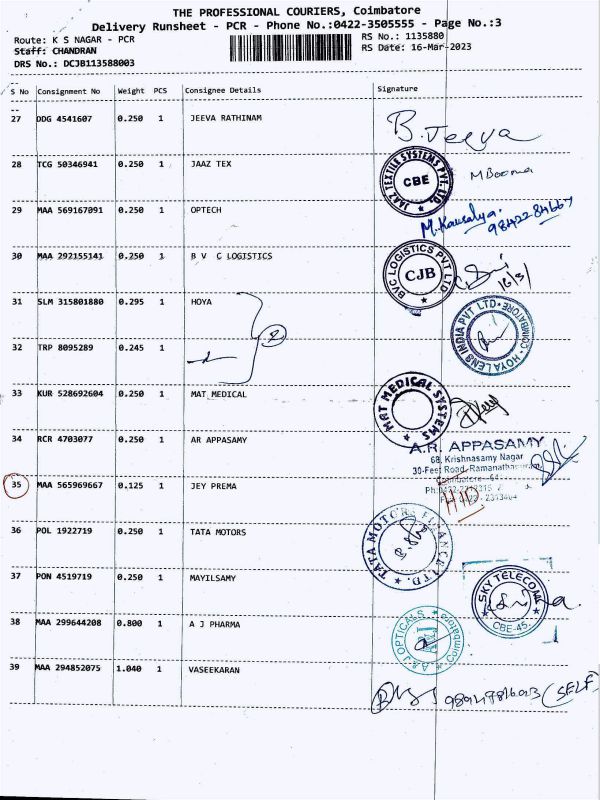 THE PROFESSIONAL COURIERS, Coimbatore
Delivery Runsheet - PCR - Phone No.:0422-3505555 - Page No.:3
Route: K S NAGAR - PCR
RS No.: 1135880
Staff: CHANDRAN
RS Date: 16-Mar-2023
DRS No.: DCJB113588003
S No Consignment No Weight PCS Consignee Details Signature
27 ODG 4541607 0.250 1 JEEVA RATHINAM B. Jeeva
28 TCG 50346941 0.250 1 JAAZ TEX JAAZ TEXTILE SYSTEMS PVT. LTD. CBE M Booma
29 MAA 569167091 0.250 1 OPTECH M. Kausalya. 9842284667
30 MAA 292155141 0.250 1 B V C LOGISTICS BVC LOGISTICS PVT LTD CJB 16/3/
31 SLM 315801880 0.295 1 HOYA HOYA LENS INDIA PVT LTD. COIMBATORE
32 TRP 8095289 0.245 1 2
33 KUR 528692604 0.250 1 MAT MEDICAL MAT MEDICAL SYSTEMS
34 RCR 4703077 0.250 1 AR APPASAMY A.R. APPASAMY
68, Krishnasamy Nagar
30-Feet Road, Ramanathapuram,
Coimbatore - 64
35 MAA 565969667 0.125 1 JEY PREMA
36 POL 1922719 0.250 1 TATA MOTORS TATA MOTORS FINANCE LTD.
37 PON 4519719 0.250 1 MAYILSAMY SKY TELECOM CBE-45.
38 MAA 299644208 0.800 1 A J PHARMA A & J OPTICALS Coimbatore
39 MAA 294852075 1.040 1 VASEEKARAN (SELF)